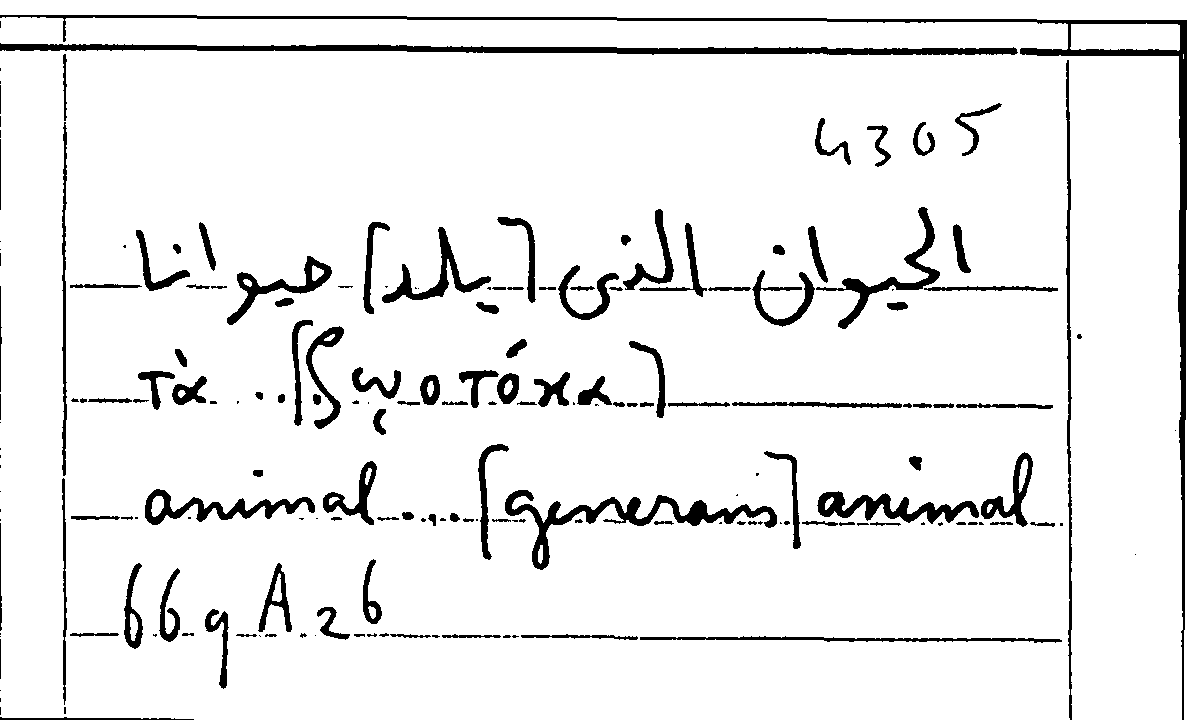 4305
الحيوان الذى [يلد] حيوانا
τὰ ..[ζῳοτόκα]
animal...[generans] animal
669 A 26